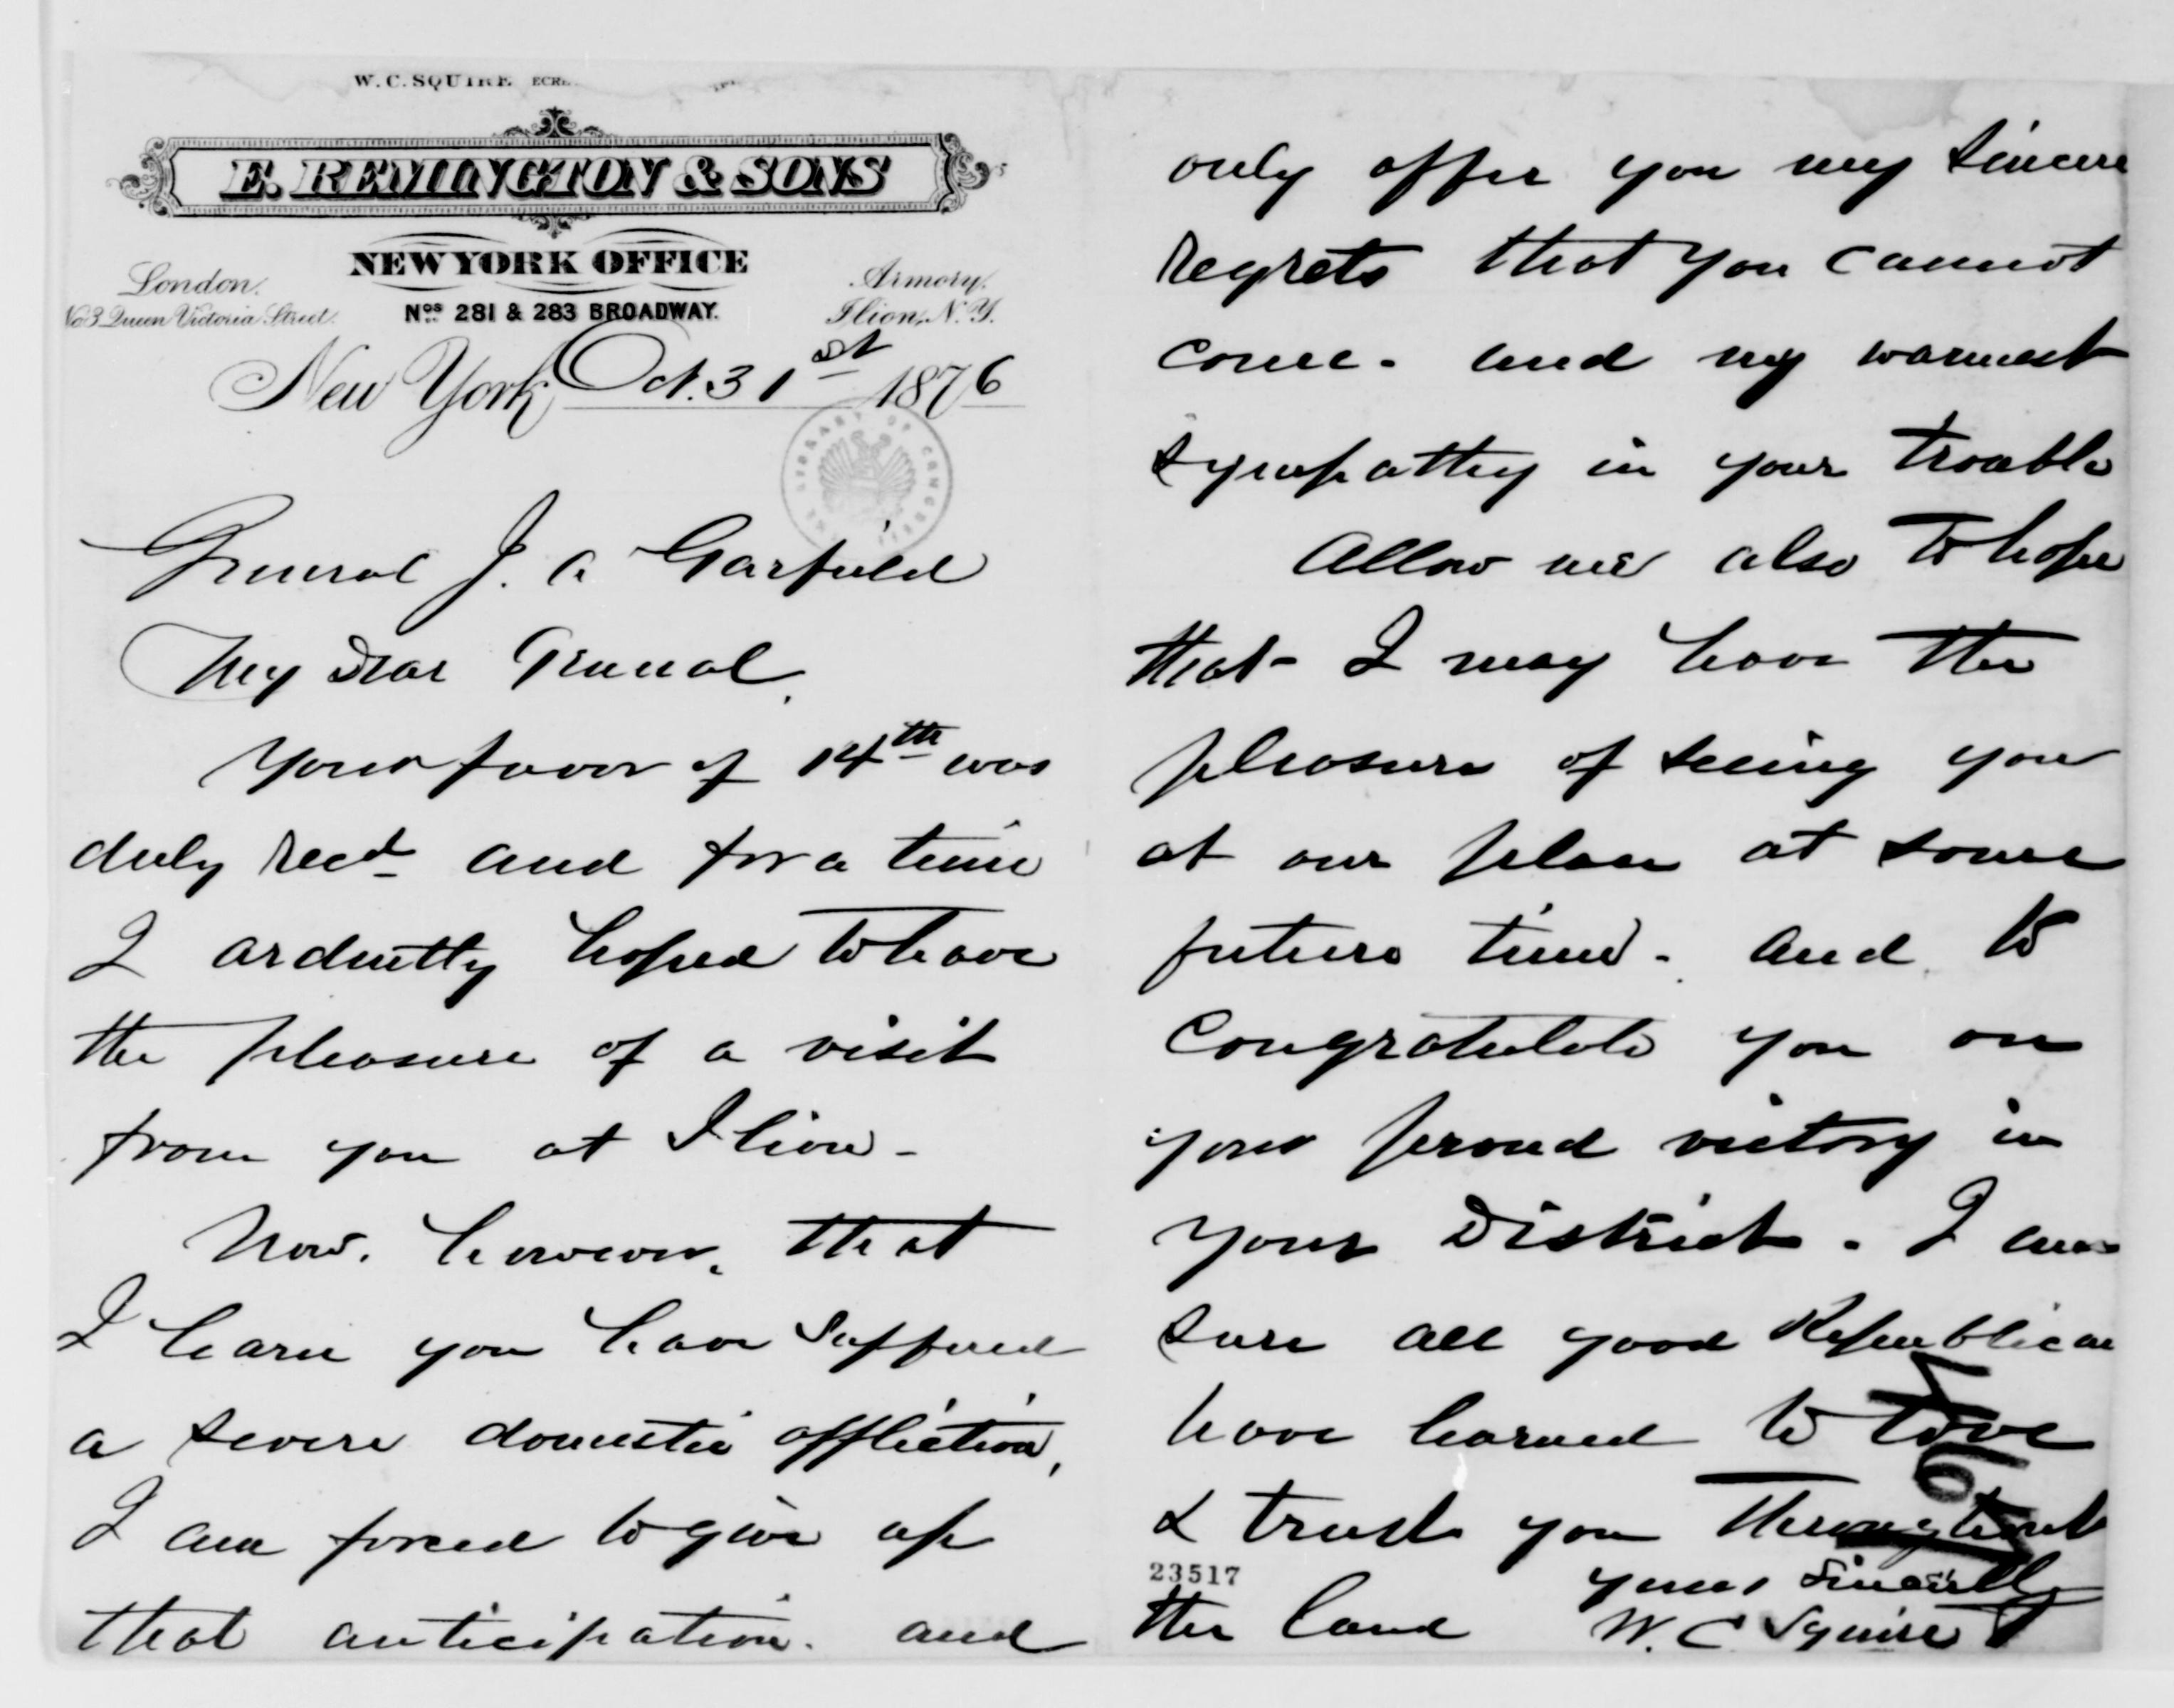 W. C. SQUIRE
E. REMINGTON & SONS
NEW YORK OFFICE
London.
Armory,
No 3 Queen Victoria Street.
Nos 281 & 283 BROADWAY.
Ilion, N.Y.
New York, Oct. 31st 1876
LIBRARY OF CONGRESS
General J. A Garfield
My Dear General,
Your favor of 14th was
duly recd and for a time
I ardently hoped to have
the pleasure of a visit
from you at Ilion -
Now, however, that
I learn you have suffered
a severe domestic affliction,
I am forced to give up
that anticipation. and
only offer you my sincere
regrets that you cannot
come - and my warmest
sympathy in your trouble
Allow me also to hope
that - I may have the
pleasure of seeing you
at our place at some
future time - and to
congratulate you on
your proud victory in
your District. I am
sure all good Republican
have learned to love
& trust you throughout
23517
the land
yours sincerely
W. C Squire